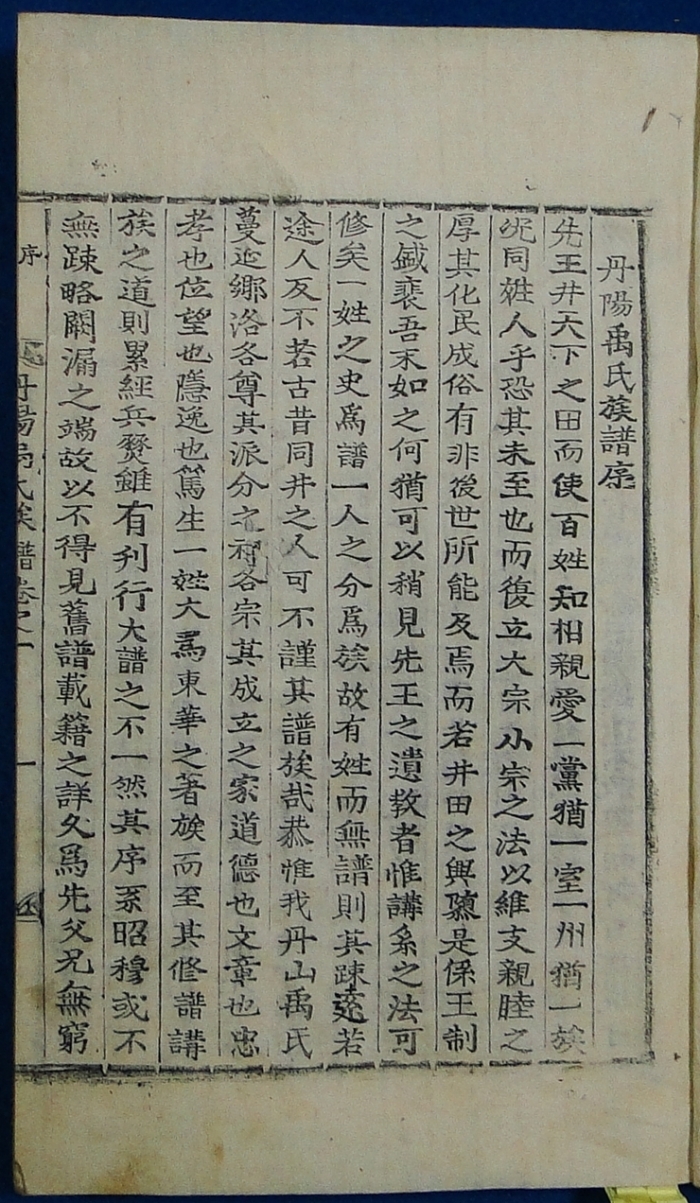 丹陽禹氏族譜序
先王井天下之田而使百姓知相親愛一黨猶一室一州猶一族
况同姓人乎恐其未至也而復立大宗小宗之法以維支親睦之
厚其化民成俗有非後世所能及焉而若井田之興隳是係王制
之盛衰吾末如之何猶可以稍見先王之遺敎者惟講系之法可
修矣一姓之史爲譜一人之分爲族故有姓而無譜則其踈遠若
途人反不若古昔同井之人可不謹其譜族哉恭惟我丹山禹氏
蔓延鄉洛各尊其派分之祖各宗其成立之家道德也文章也忠
孝也位望也隱逸也篤生一姓大爲東華之著族而至其修譜講
族之道則累經兵燹雖有刋行大譜之不一然其序系昭穆或不
無踈略闕漏之端故以不得見舊譜載籍之詳久爲先父兄無窮
序
丹陽禹氏族譜卷之一
一